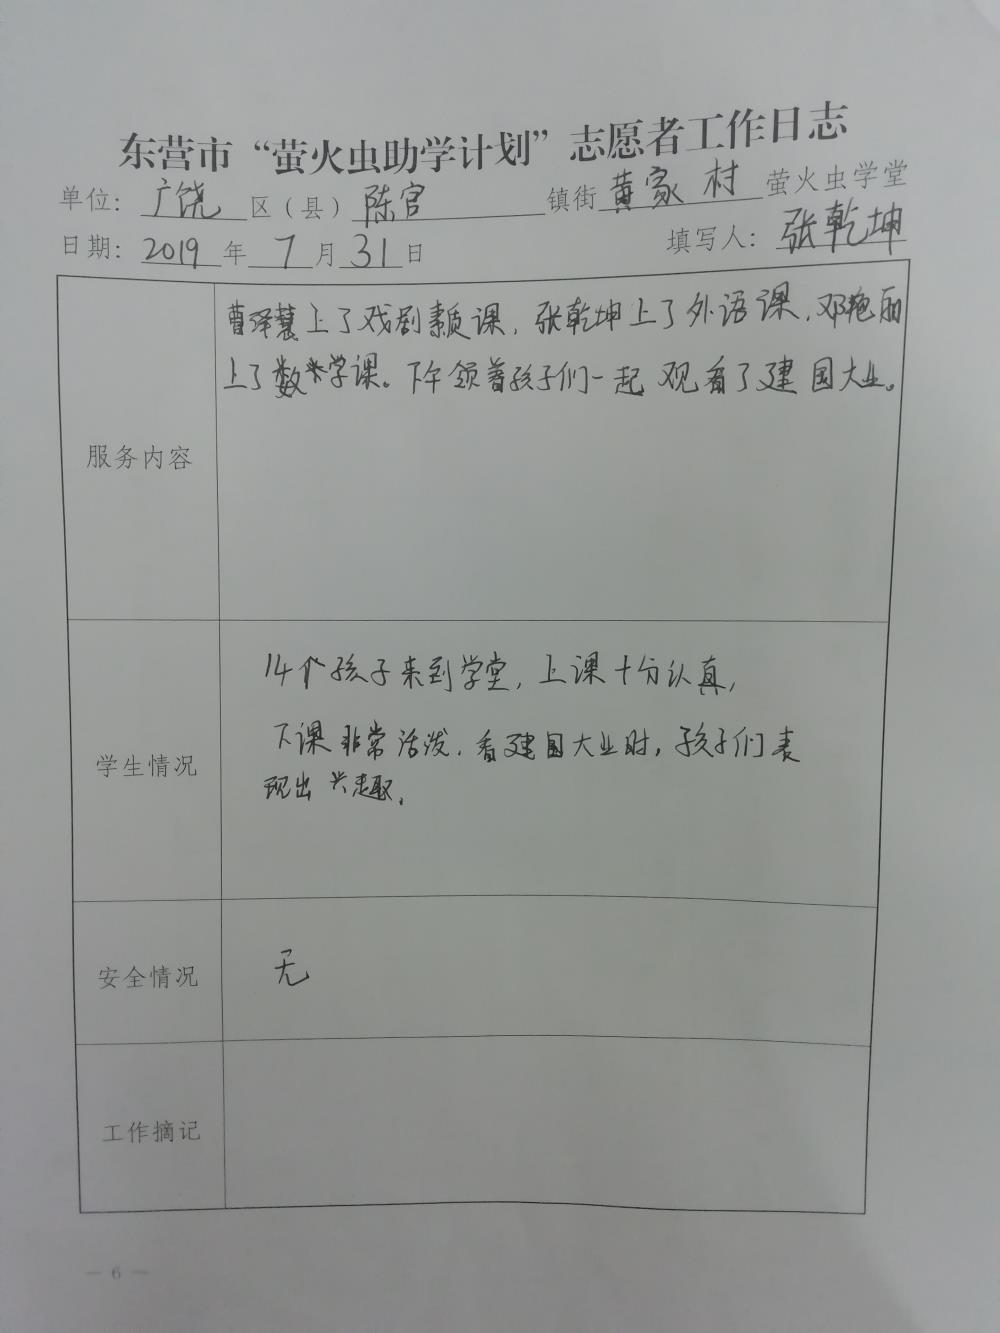 东营市“萤火虫助学计划”志愿者工作日志
单位：广饶区（县）陈官镇街黄家村萤火虫学堂
日期：2019年7月31日 填写人：张乾坤
服务内容
曹泽慧上了戏剧素质课，张乾坤上了外语课，邓艳丽
上了数学课。下午领着孩子们一起观看了建国大业。
学生情况
14个孩子来到学堂，上课十分认真，
下课非常活泼，看建国大业时，孩子们表
现出兴趣。
安全情况
无
工作摘记
— 6 —